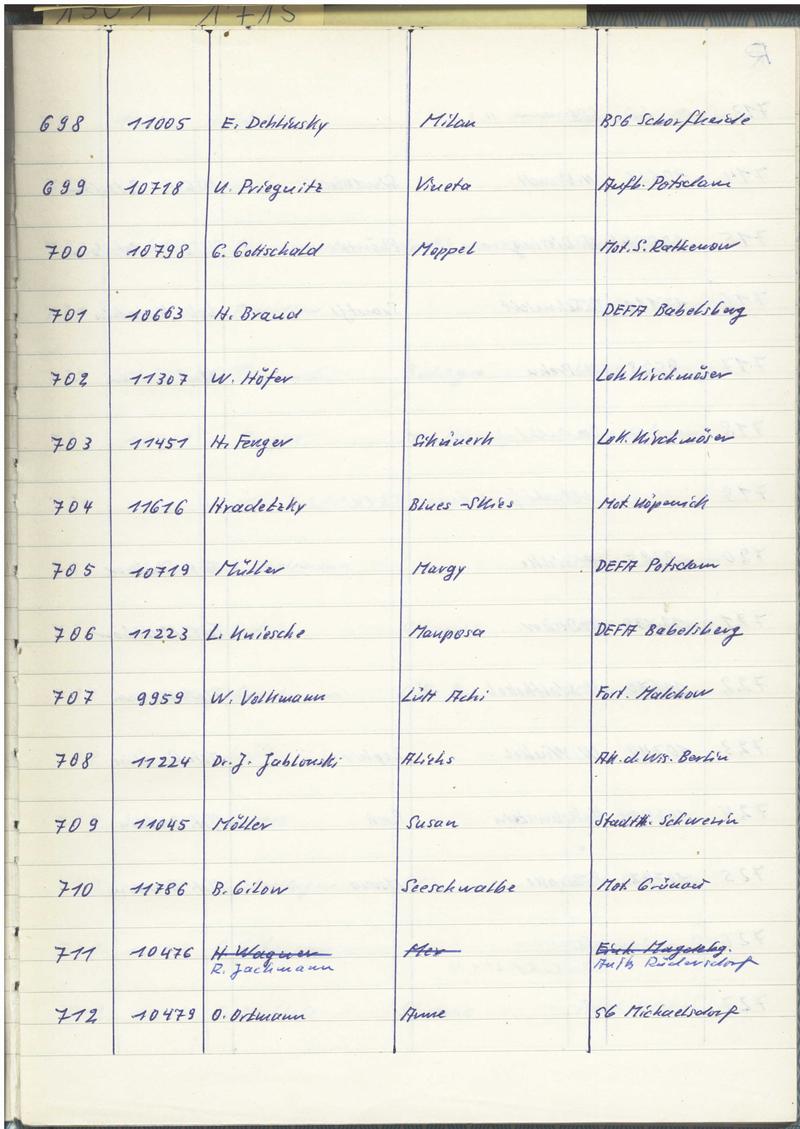 698 11005 E. Dehlinsky Milan BSG Schorfheide
699 10718 U. Priegnitz Vineta Aufb. Potsdam
700 10798 G. Gottschald Moppel Mot. S. Rathenow
701 10663 H. Brand DEFA Babelsberg
702 11307 W. Höfer Lok. Kirchmöser
703 11451 H. Fenger Lok. Kirchmöser
704 11616 Hradetzky Blues-Skies Mot. Köpenick
705 10719 Müller Margy DEFA Potsdam
706 11223 L. Kniesche Mariposa DEFA Babelsberg
707 9959 W. Volkmann Fort. Malchow
708 11224 Dr. J. Jablonski Ak. d. Wis. Berlin
709 11045 Möller Susan Schwerin
710 11786 B. Gilow Seeschwalbe Mot. Grünau
711 10476 H Wagner Mev Einh. Magdebg.
R. Jachmann Aufb Rüdersdorf
712 10479 O. Ortmann Anne SG Michaelsdorf